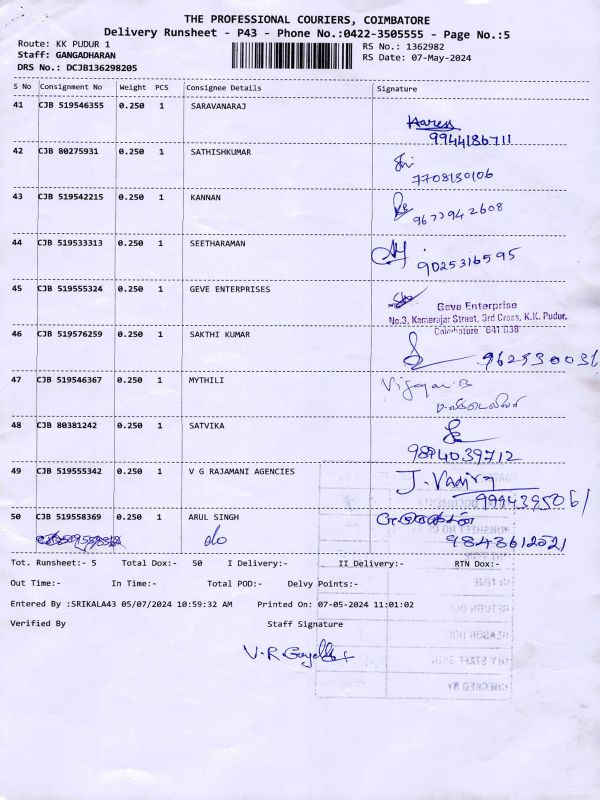 THE PROFESSIONAL COURIERS, COIMBATORE
Delivery Runsheet - P43 - Phone No.:0422-3505555 - Page No.:5
Route: KK PUDUR 1
RS No.: 1362982
Staff: GANGADHARAN
RS Date: 07-May-2024
DRS No.: DCJB136298205
S No Consignment No Weight PCS Consignee Details Signature
41 CJB 519546355 0.250 1 SARAVANARAJ
9944186711
42 CJB 80275931 0.250 1 SATHISHKUMAR
7708130106
43 CJB 519542215 0.250 1 KANNAN
9677942608
44 CJB 519533313 0.250 1 SEETHARAMAN
9025316595
45 CJB 519555324 0.250 1 GEVE ENTERPRISES
Geve Enterprise
No.3, Kamarajar Street, 3rd Cross, K.K. Pudur.
Coimbatore 641 038
46 CJB 519576259 0.250 1 SAKTHI KUMAR
962530031
47 CJB 519546367 0.250 1 MYTHILI
48 CJB 80381242 0.250 1 SATVIKA
9894039712
49 CJB 519555342 0.250 1 V G RAJAMANI AGENCIES
9994395061
50 CJB 519558369 0.250 1 ARUL SINGH
do
9843612521
Tot. Runsheet:- 5 Total Dox:- 50 I Delivery:- II Delivery:- RTN Dox:-
Out Time:- In Time:- Total POD:- Delvy Points:-
Entered By :SRIKALA43 05/07/2024 10:59:32 AM Printed On: 07-05-2024 11:01:02
Verified By Staff Signature